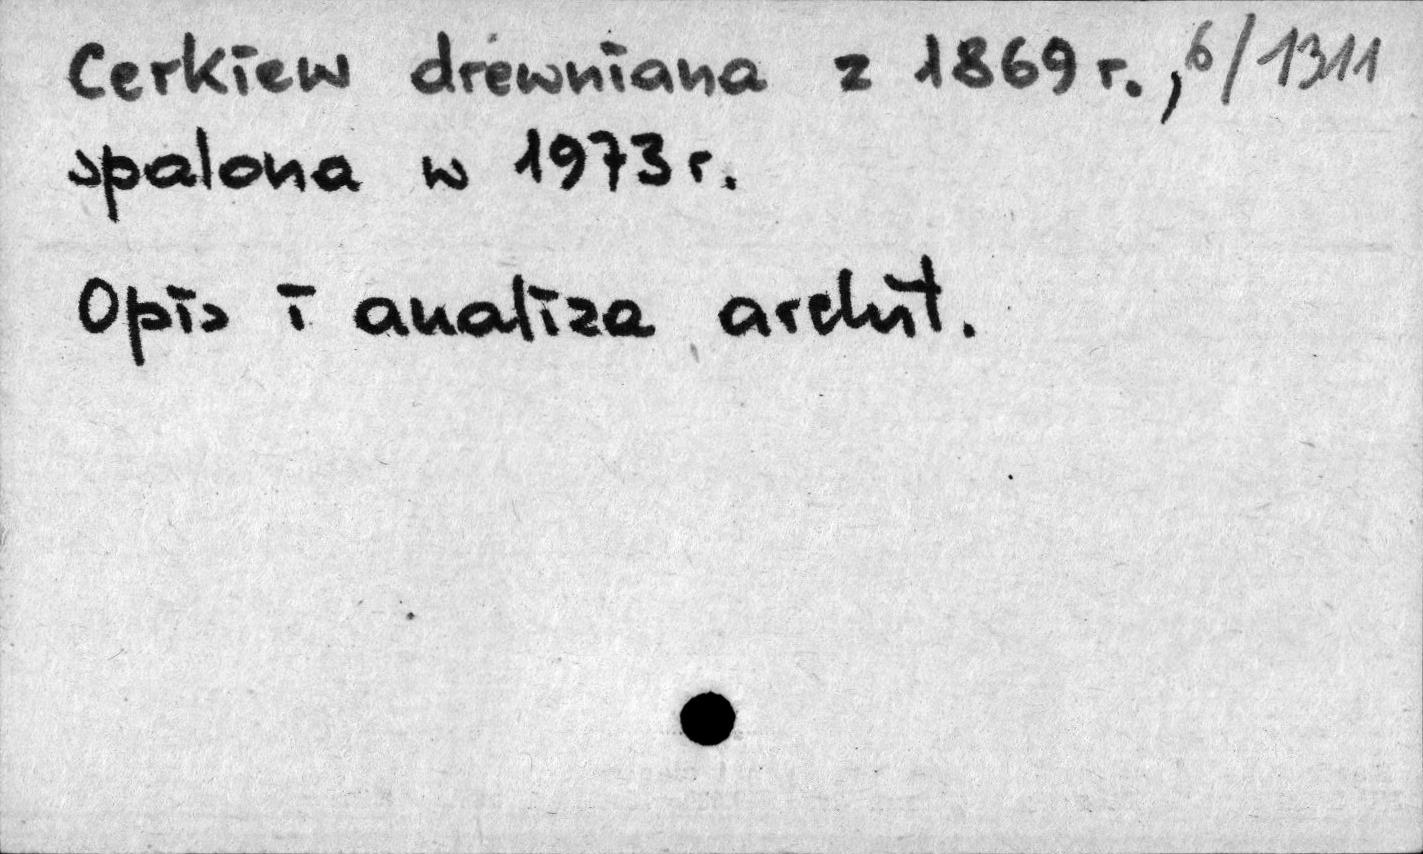 Cerkiew drewniana z 1869 r., 6/1311
spalona w 1973 r.
Opis i analiza archit.